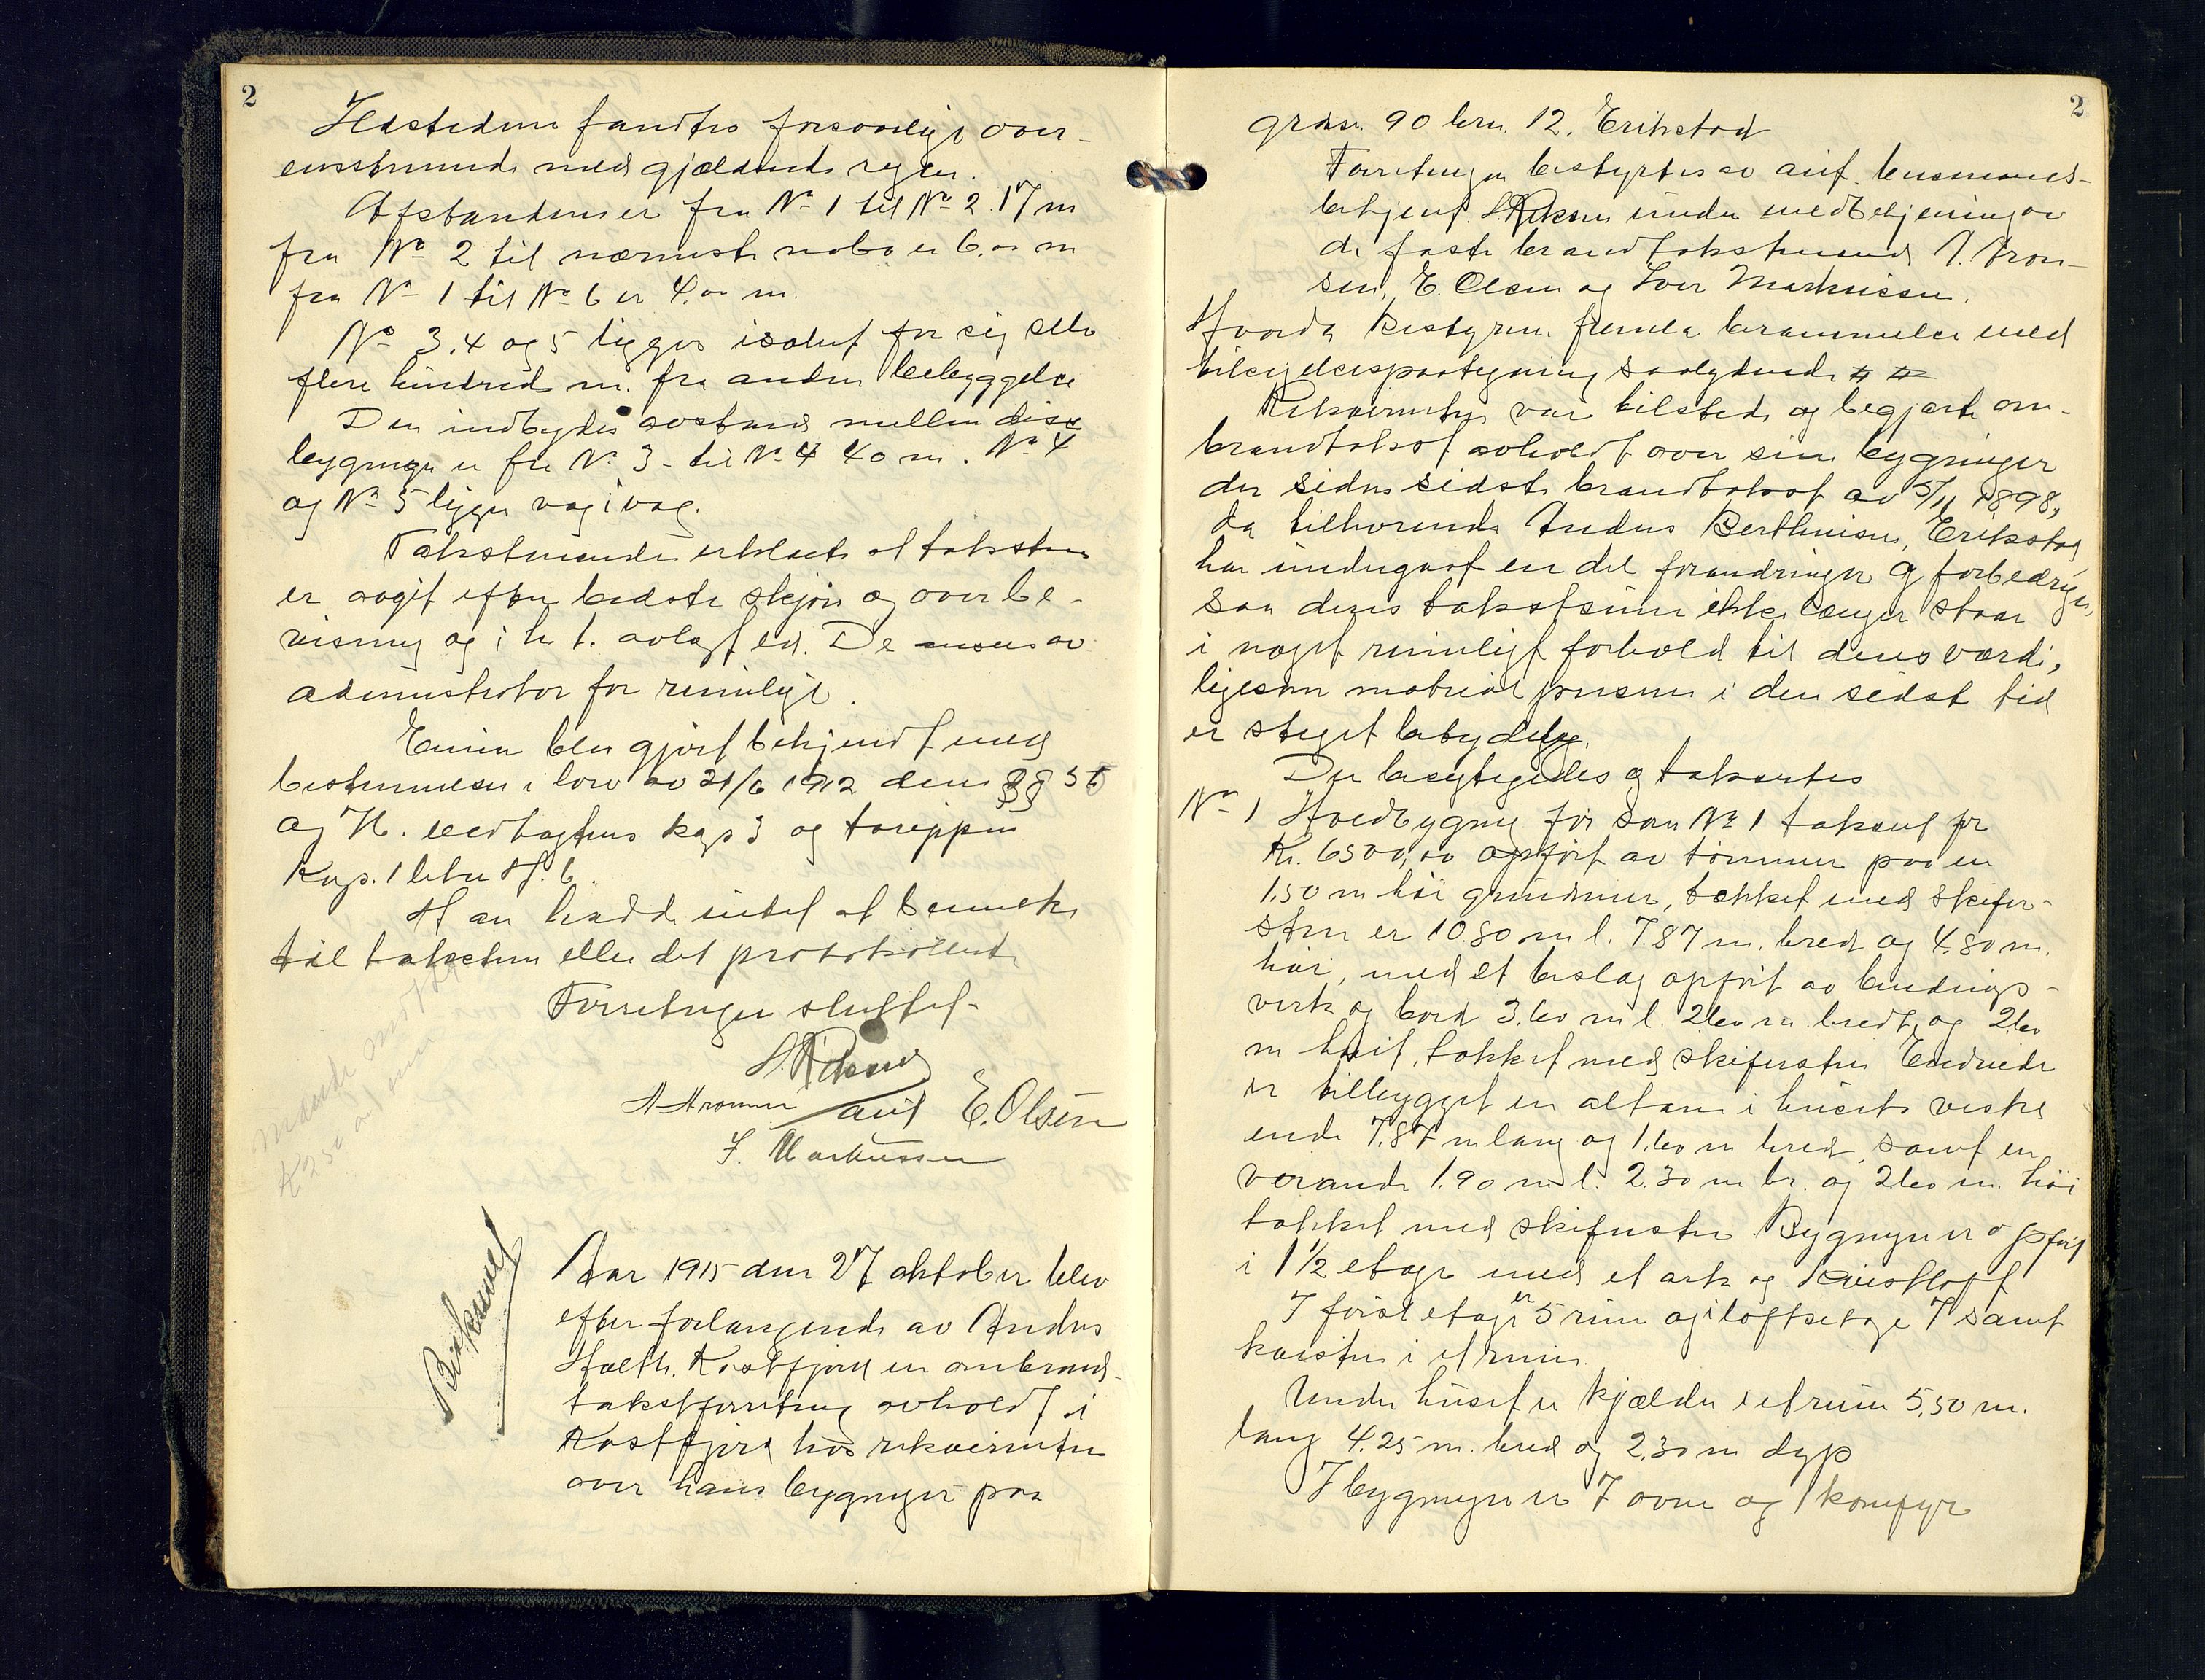 2
Ildstedene fandtes forsvarlige over-
ensstemmende med gjældende regler.
Afstanden er fra No 1 til No 2. 17 m
fra No 2 til nærmeste nabo er 6,00 m
fra No 1 til No 6 er 4,00 m.
No 3, 4 og 5 ligger isolert for sig selv
flere hundred m. fra anden bebyggelse
Den indbyrdes avstand mellem disse
bygninger er fra No 3 - til No 4 40 m. No 4
og No 5 ligger væg i væg.
Takstmændene erklærte at taksten
er avgit efter bedste skjøn og overbe-
visning og i h. t. avlagt ed. De ansees av
administrator for rimelige.
Eieren blev gjort bekjendt med
bestemmelser i lov av 21/6 1912 dens §§ 36
og H. vedtægters kap 3 og tarippen
Kap. 1 litr H. 6.
Han hadde intet at bemerke
til taksten eller det protokollerte
Forretningen sluttet-
A Aronsen auf E. Olsen
I. Markussen
Aar 1915 den 27 oktober blev
efter forlangende av Andus
Holth. Kostfjord en ombrand-
takstforretning avholdt i
Kostfjord hos rekvirenten
over hans bygninger paa
2
grdsn. 90 brn. 12. Erikstad
Forretningen bestyrtes av auf. lensmands-
betjent under medbetjening av
de faste brandtakstmænd A. Aron-
sen, E. Olsen og Iver Markussen.
Hvorda Bestyreren fremla berammelse med
tilsigelsespaategning saalydende # #
Rekvirenten var tilstede og begjærte om-
brandtakst avholdt over sine bygninger
der siden sidste brandtakst av 5/11 1898,
da tilhørende Andus Berthinsen, Erikstad
har undergaat en del forandringer og forbedringer,
saa deres takstsum ikke længer staar
i noget rimeligt forhold til deres værdi,
ligesom material prisene i den sidste tid
er steget betydelig.
Der besigtigedes og taksertes
No 1 Hovedbygning før som No 1 taksert for
Kr. 6500,00 opført av tømmer paa en
1.50 m høi grundmur, tækket med skifer-
sten er 10.80 m l. 7.87 m. bred og 4.80 m.
høi, med et beslag opført av bindings-
verk og bord 3.60 m l. 2.60 m. bredt, og 2.60
m høit, tækket med skifersten Endvidere
er tilbygget en altan i husets vestre
ende 7.87 m lang og 1.60 m bred, samt en
veranda 1.90 m l. 2.30 m br. og 2.60 m. høi
tækket med skifersten Bygningen er opført
i 1 1/2 etage med et ark og Kvistloft
I første etage er 5 rum og i loftsetage 7 samt
kvisten i et rum.
Under huset er kjælder i et rum 5,50 m.
lang 4.25 m. bred og 2,30 m dyp
I bygningen er 7 ovne og 1 komfyr